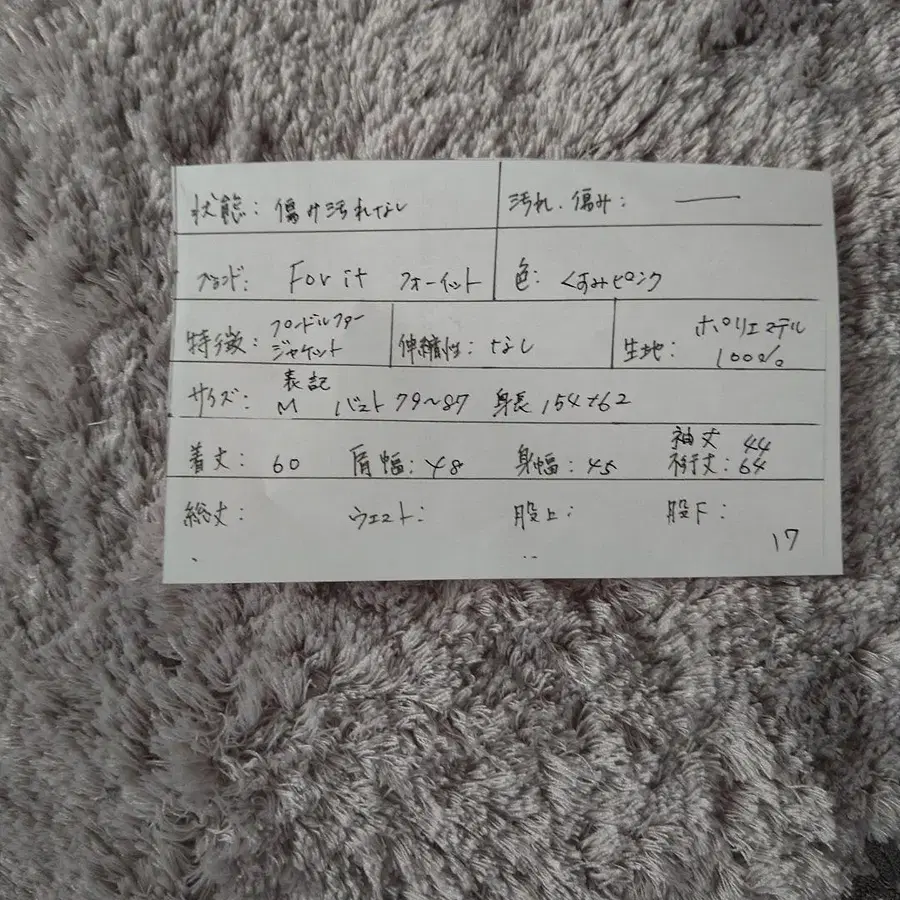 状態: 傷み汚れなし 汚れ.傷み: ―
ブランド: For it フォーイット 色: くすみピンク
特徴: フロンドルファー ジャケット 伸縮性: なし 生地: ポリエステル 100%
サイズ: 表記 M バスト 79~87 身長 154~162
着丈: 60 肩幅: 48 身幅: 45 袖丈 44
裄丈: 64
総丈: ウエスト: 股上: 股下:
17